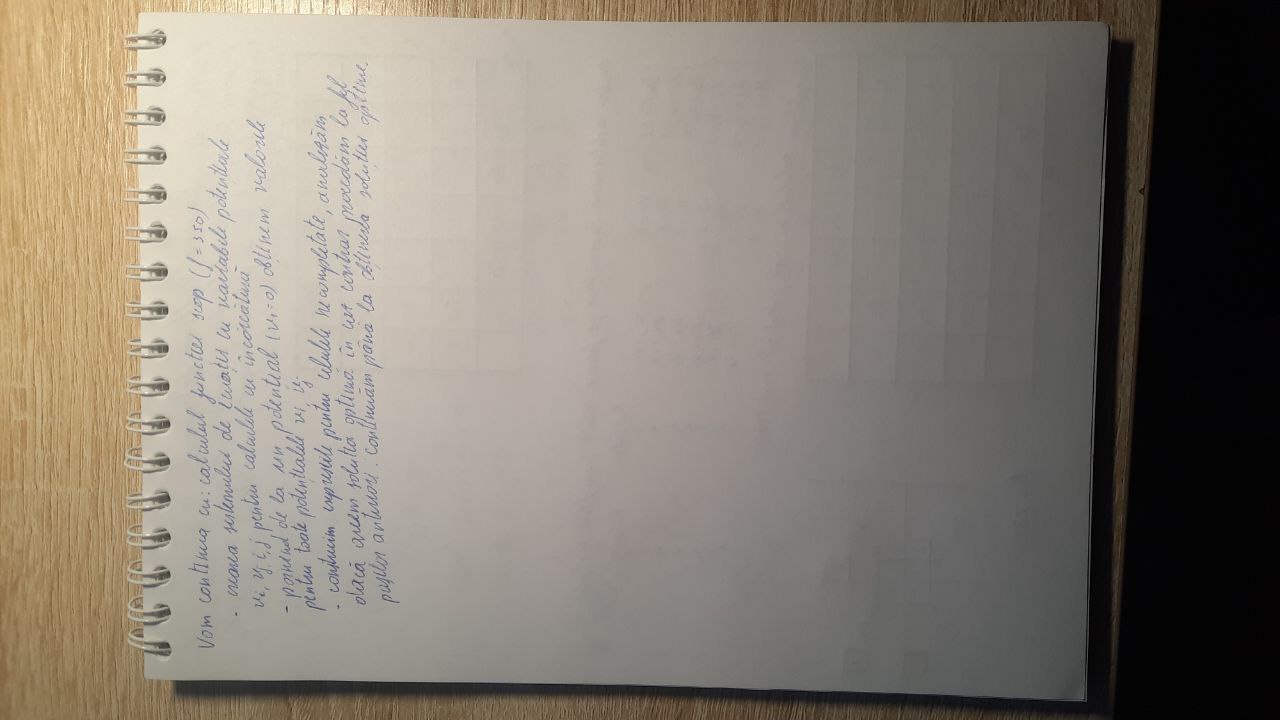 Vom continua cu: calculul funcției scop (f = 350)
- crearea sistemului de ecuații cu variabile potențiale
vi, yj i,j pentru calculele cu încărcătură
- pornind de la un potențial (v1=0) obținem valorile
pentru toate potențialele vi yj.
- construim expresiile pentru celulele necompletate, analizăm
dacă avem soluția optimă în caz contrar procedăm la fel
pașilor anteriori. Continuăm până la obținerea soluției optime.